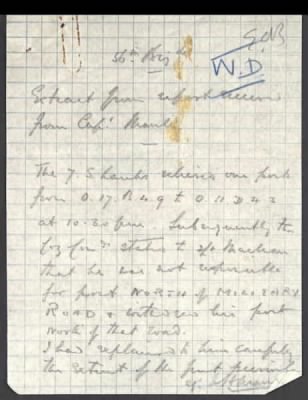 56th Bde
W.D.
Extract from report received
from Capt
The 7. S Lancs relieved our post
from O.17.B.4.9 to O.11.D.4.2
at 10.30 pm. Subsequently the
stated to
that he was not responsible
for post NORTH of MILITARY
ROAD & withdrew his post
North of that road.
I had explained to him carefully
the extent of the front